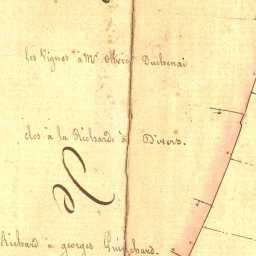 les Vignes à Mr Duchenai
clos à la Richard à Divers.
Richard à georges Guichard.